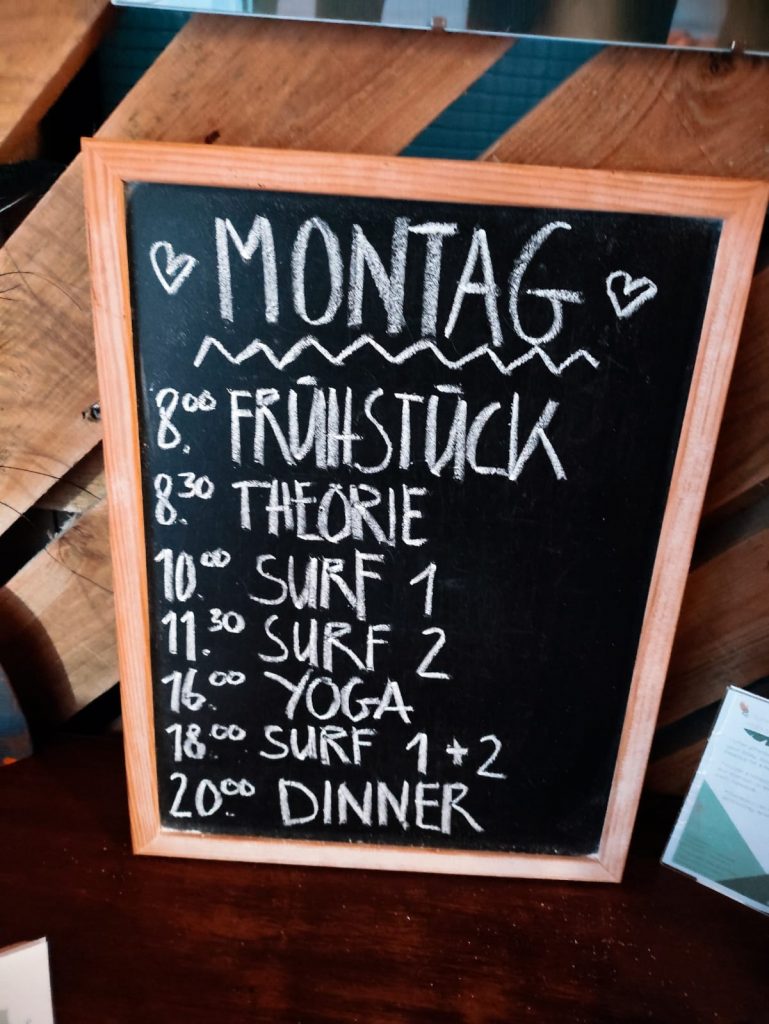 ♡ MONTAG ♡
8.00 FRÜHSTÜCK
8.30 THEORIE
10.00 SURF 1
11.30 SURF 2
16.00 YOGA
18.00 SURF 1+2
20.00 DINNER